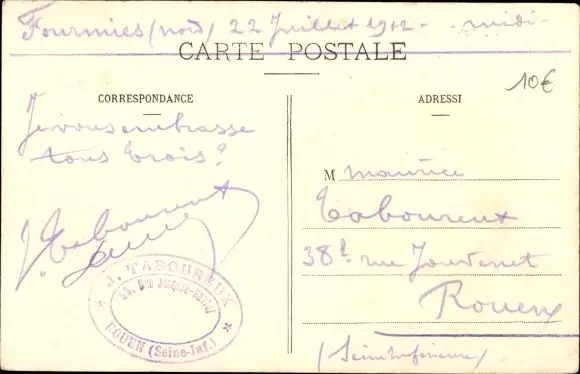 Fourmies (nord) 22 Juillet 1912 - midi -
CARTE POSTALE
10€
CORRESPONDANCE
Je vous embrasse
tous trois.
J. Taboureux
J. TABOUREUX
ROUEN (Seine-Inf.)
ADRESSE
M maurice
Taboureux
38 rue Jouvenet
Rouen
(Seine Inférieure)